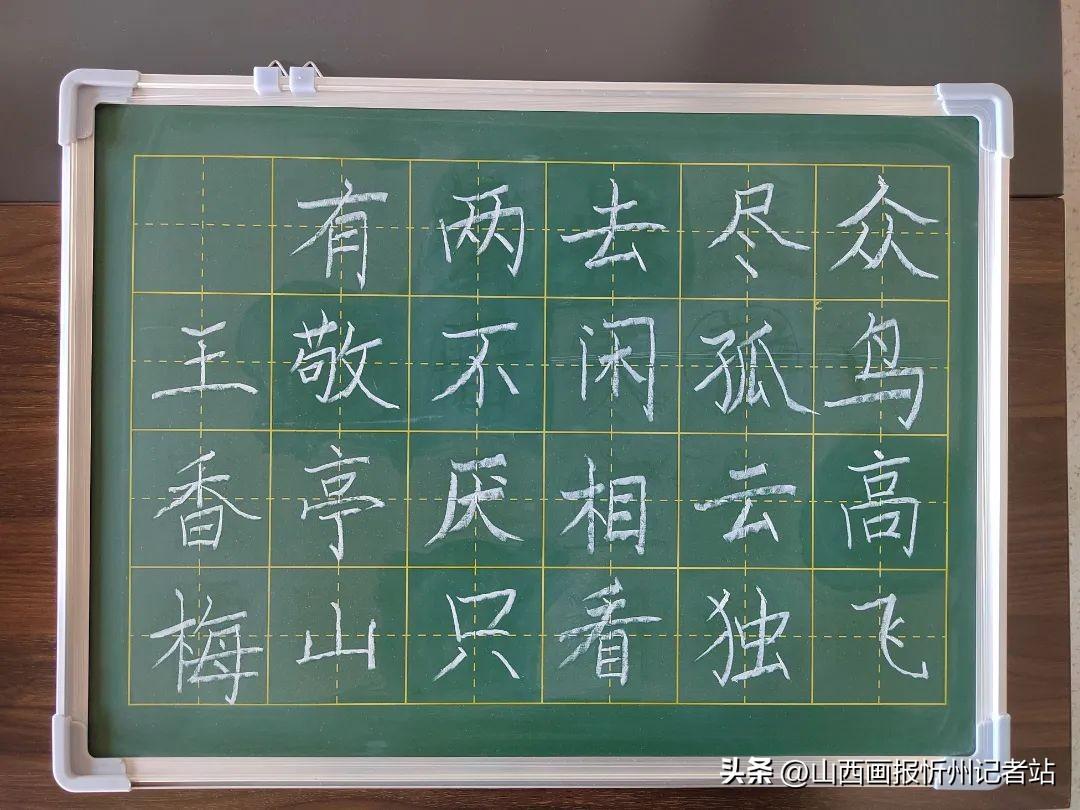 众鸟高飞
尽孤云独
去闲相看
两不厌只
有敬亭山
王香梅
头条 @山西画报忻州记者站